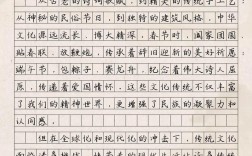 的诗词歌赋，到精美的传统手工艺
从神秘的民俗节日，到独特的建筑风格，中华
文化源远流长，博大精深。春节时，阖家团圆
贴春联、放鞭炮，传承着辞旧迎新的美好祈愿；
端午节，包粽子、赛龙舟，纪念着伟大诗人屈
原，传递着爱国情怀。这些传统文化不仅丰富
了我们的精神世界，更增强了民族的凝聚力和
认同感。
但在全球化和现代化的冲击下，传统文化